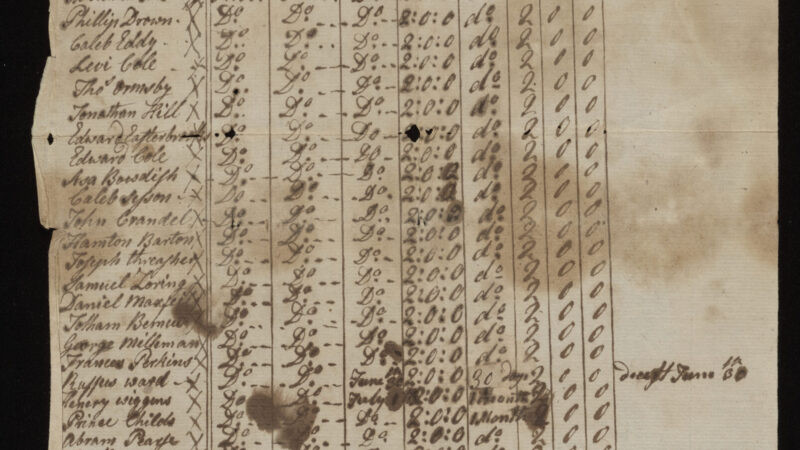 Phillip Drown X Do. Do. Do. 2:0:0 do 2 0 0
Caleb Eddy X Do. Do. Do. 2:0:0 do 2 0 0
Levi Cole X Do. Do. Do. 2:0:0 do 2 0 0
Thos Ormsby X Do. Do. Do. 2:0:0 do 2 0 0
Jonathan Hill X Do. Do. Do. 2:0:0 do 2 0 0
Edward Do. Do. Do 2:0:0 do 2 0 0
Edward Cole X Do. Do. Do 2:0:0 do 2 0 0
Asa Bowdish X Do. Do. Do. 2:0:0 do 2 0 0
Caleb X Do Do. Do. 2:0:0 do 2 0 0
John Crandel X Do Do. Do. 2:0:0 do 2 0 0
Hamton Barton X Do. Do. Do. 2:0:0 do 2 0 0
Joseph threasher X Do. Do. Do. 2:0:0 do 2 0 0
Samuel Loring X Do Do. Do. 2:0:0 do 2 0 0
Daniel Do Do. Do. 2:0:0 do 2 0 0
Do Do. Do. 2:0:0 do 2 0 0
George X Do Do. Do. 2:0:0 do 2 0 0
Frances Perkins X Do Do. Do. 2:0:0 do 2 0 0
Ruffus ward X Do. Do. June 2:0:0 30 days 2 0 0 June 30
Henry wiggens X Do. Do. July 1 2:0:0 1 Month 2 0 0
Prince Childs X Do. Do. Do 2:0:0 1 Month 2 0 0
Abram Pearse X Do. Do. Do. 2:0:0 do 2 0 0